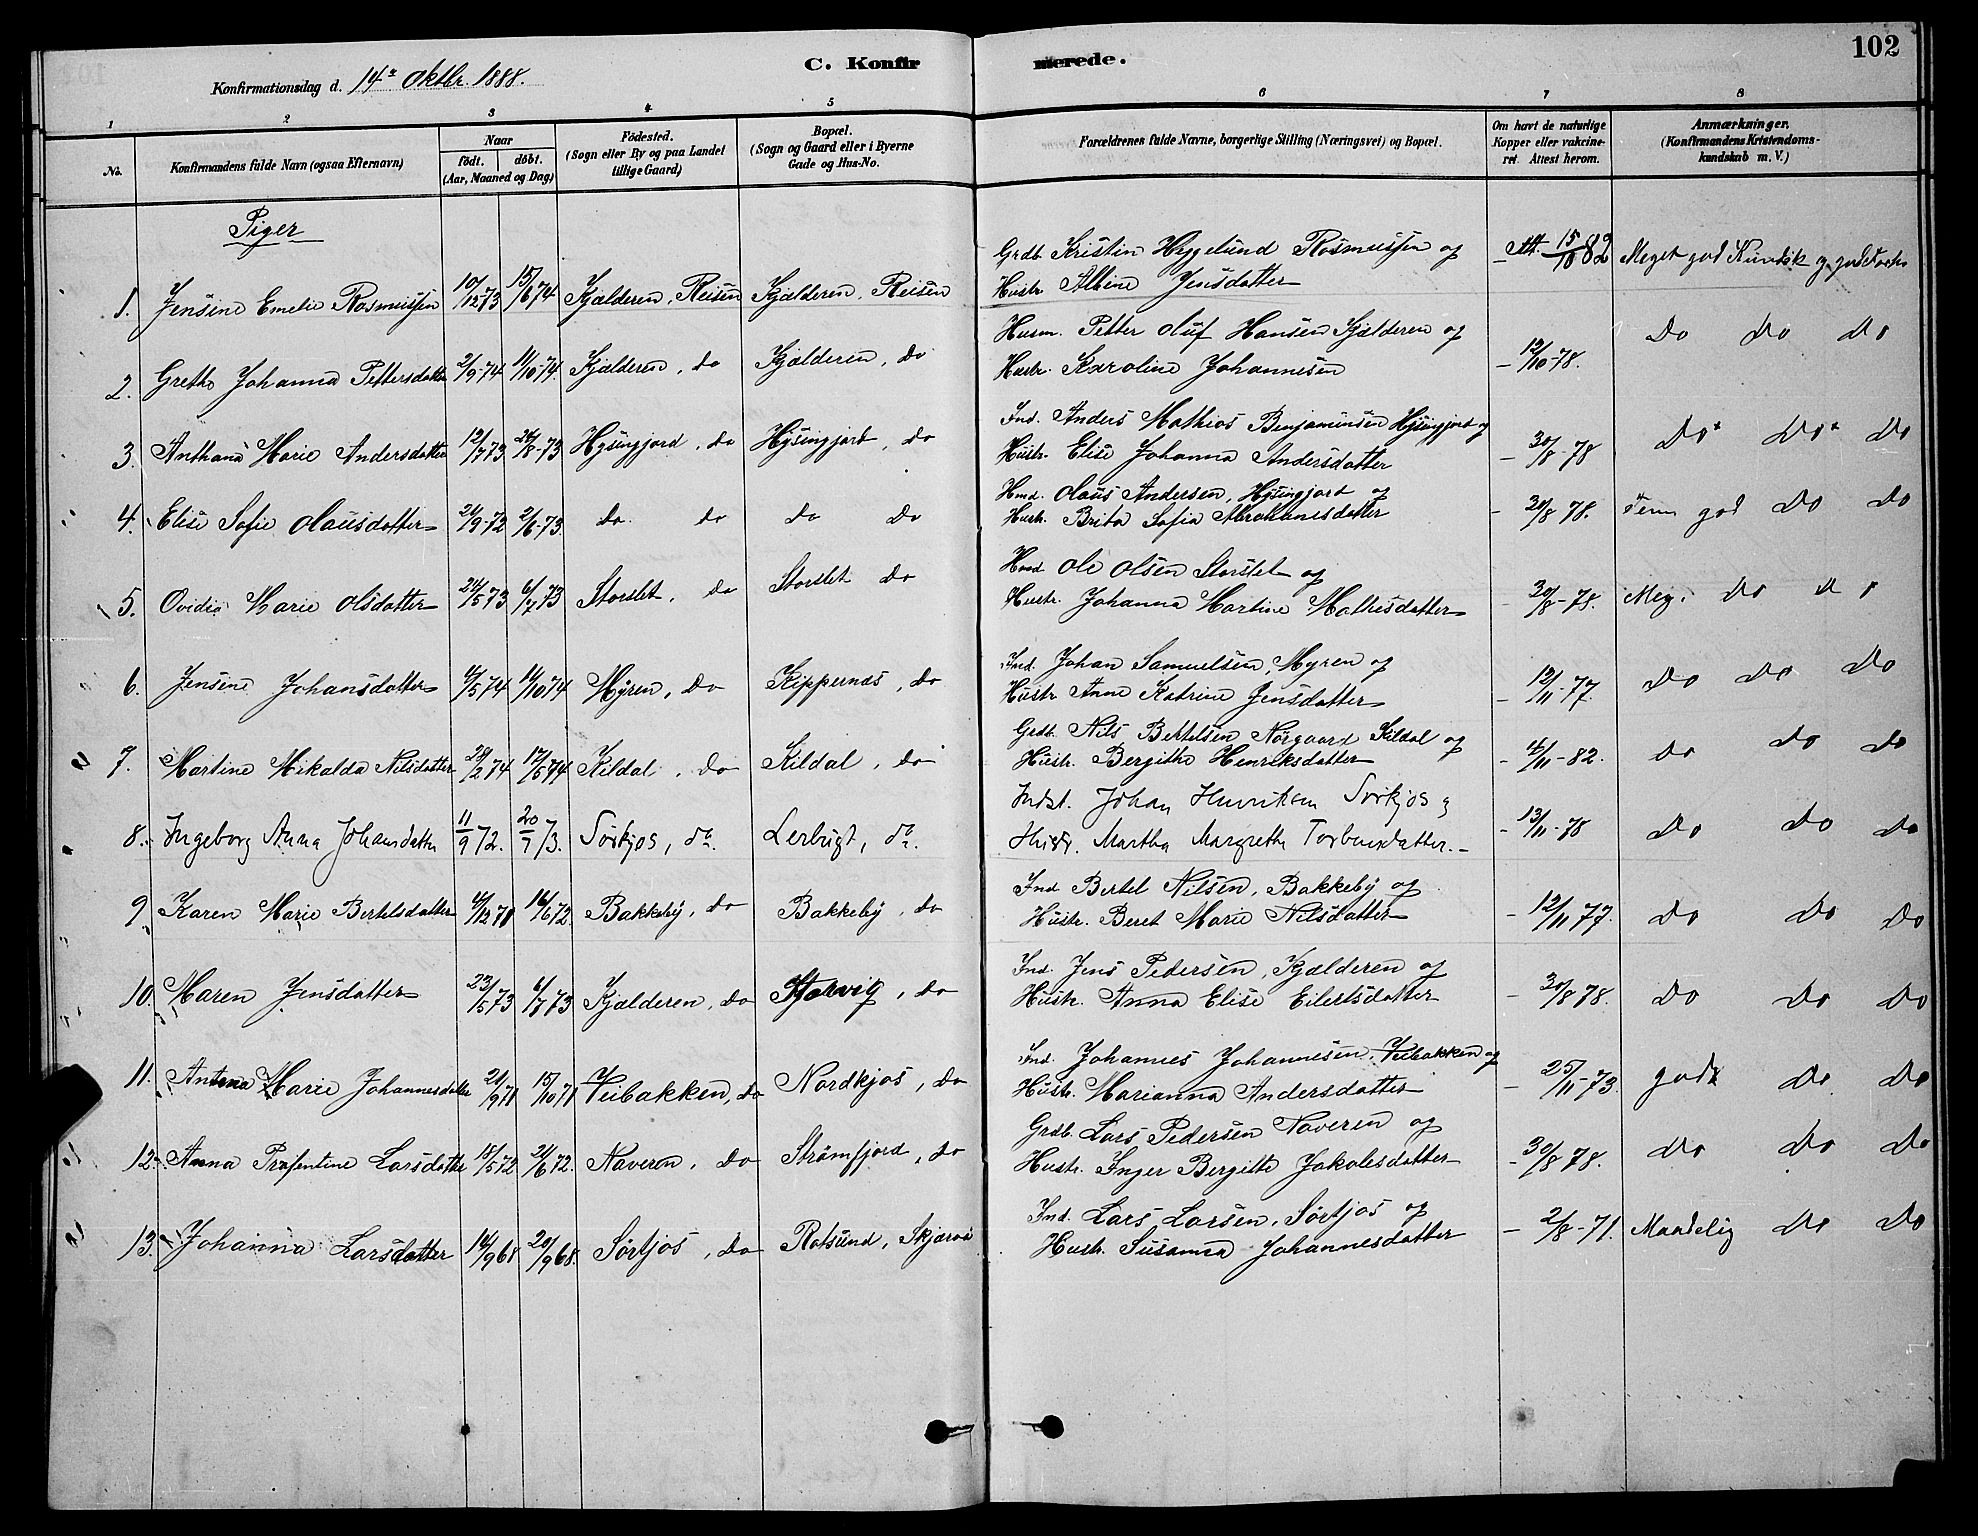 C. Konfir merede. 102
Konfirmationsdag d. 14de Oktbr. 1888.
1 2 3 4 5 6 7 8
No. Konfirmandens fulde Navn (ogsaa Efternavn) Naar født. døbt. (Aar, Maaned og Dag) Fødested. (Sogn eller By og paa Landet tillige Gaard) Bopæl. (Sogn og Gaard eller i Byerne Gade og Hus-No. Forældrenes fulde Navne, borgerlige Stilling (Næringsvei) og Bopæl. Om havt de naturlige Kopper eller vakcineret. Attest herom. Anmærkninger. (Konfirmandens Kristendomskundskab m. V.)
Piger
1. Jensine Emelie Rasmussen 10/12 73 15/6 74 Kjælderen, Reisen Kjælderen, Reisen Grdb. Kristen Hygelund Rasmussen og Hustr. Albine Jensdatter Att. 15/10 82 Meget god Kundsk. og god
2. Grethe Johanna Pettersdatter 2/9-74 11/10-74. Kjælderen, do Kjælderen, do Husm. Petter Oluf Hansen Kjælderen og Hustr. Karoline Johannesen - 12/10-78. Do Do Do
3. Anthana Marie Andersdatter 12/7 73 24/8-73 Hysingjord, do Hysingjord, do Ind. Anders Mathias Benjaminsen Hysingjord og Hustr. Elise Johanna Andersdatter - 30/8-78 Do Do Do
4. Elise Sofie Olausdatter 24/9-72 2/6-73. do do do do Hmd. Olaus Andersen, Hysingjord og Hustr. Brita Sofia Abrahamsdatter - 30/8 78. god Do Do
5. Ovidia Marie Olsdatter 24/5 73 6/7 73 Storslet, do Storslet do Hmd. Ole Olsen Storslet og Hustr. Johanna Martine Mathisdatter - 30/8-78. Meg. Do
6. Jensine Johansdatter 4/5 74 11/10 74 Myren, do Kippernæs, do Ind. Johan Samuelsen, Myren og Hustr. Anne Katrine Jensdatter - 12/11-77. Do Do Do
7. Martine Mikalda Nilsdatter 28/2 74 17/5 74 Kildal, do Kildal, do Grdb. Nils Bertelsen Norgaard Kildal og Hustr. Bergithe Henriksdatter - 16/11-82. Do Do Do
8. Ingeborg Anna Johansdatter 11/9 72. 20/7 73. Sørkjos, do. Lerbugt, do. Indst. Johan Henriksen Sørkjos og Hustr. Martha Margrethe Torbersdatter. - 13/11-78 Do Do Do
9 Karen Marie Bertelsdatter 4/12 71 16/6 72. Bakkeby, do Bakkeby, do Ind. Bertel Nilsen, Bakkeby og Hustr. Beret Marie Nilsdatter - 12/11 77. Do Do Do
10. Maren Jensdatter 23/5 73 6/7 73 Kjælderen, do Storvig, do Ind. Jens Pedersen, Kjælderen og Hustr. Anna Elise Eilertsdatter - 30/8 78. Do Do Do
11. Antona Marie Johannesdatter 21/9 71 15/10 71 Veibakken, do Nordkjos, do Ind. Johannes Johannesen, Veibakken og Hustr. Marianna Andersdatter - 25/11-73. god Do Do
12. Anna Præsentine Larsdatter 15/5 72 21/6 72. Naveren, do Strømfjord, do Grdb. Lars Pedersen Naveren og Hustr. Inger Bergitte Jakobsdatter - 30/8 78. Do Do Do
13. Johanna Larsdatter 14/9 68 20/9 68. Sørkjos, do Rotsund, Skjærvø Ind. Lars Larsen, Sørkjos og Hustr. Susanna Johannesdatter - 2/8-71. Maadelig Do Do